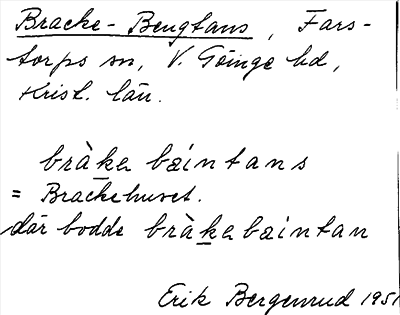 Bracke-Bengtans, Fars-
torps sn, V. Göinge hd,
Krist. län.
bràkabæintans
= Brackehuset.
där bodde bràkabæintan
Erik Bergenrud 1951